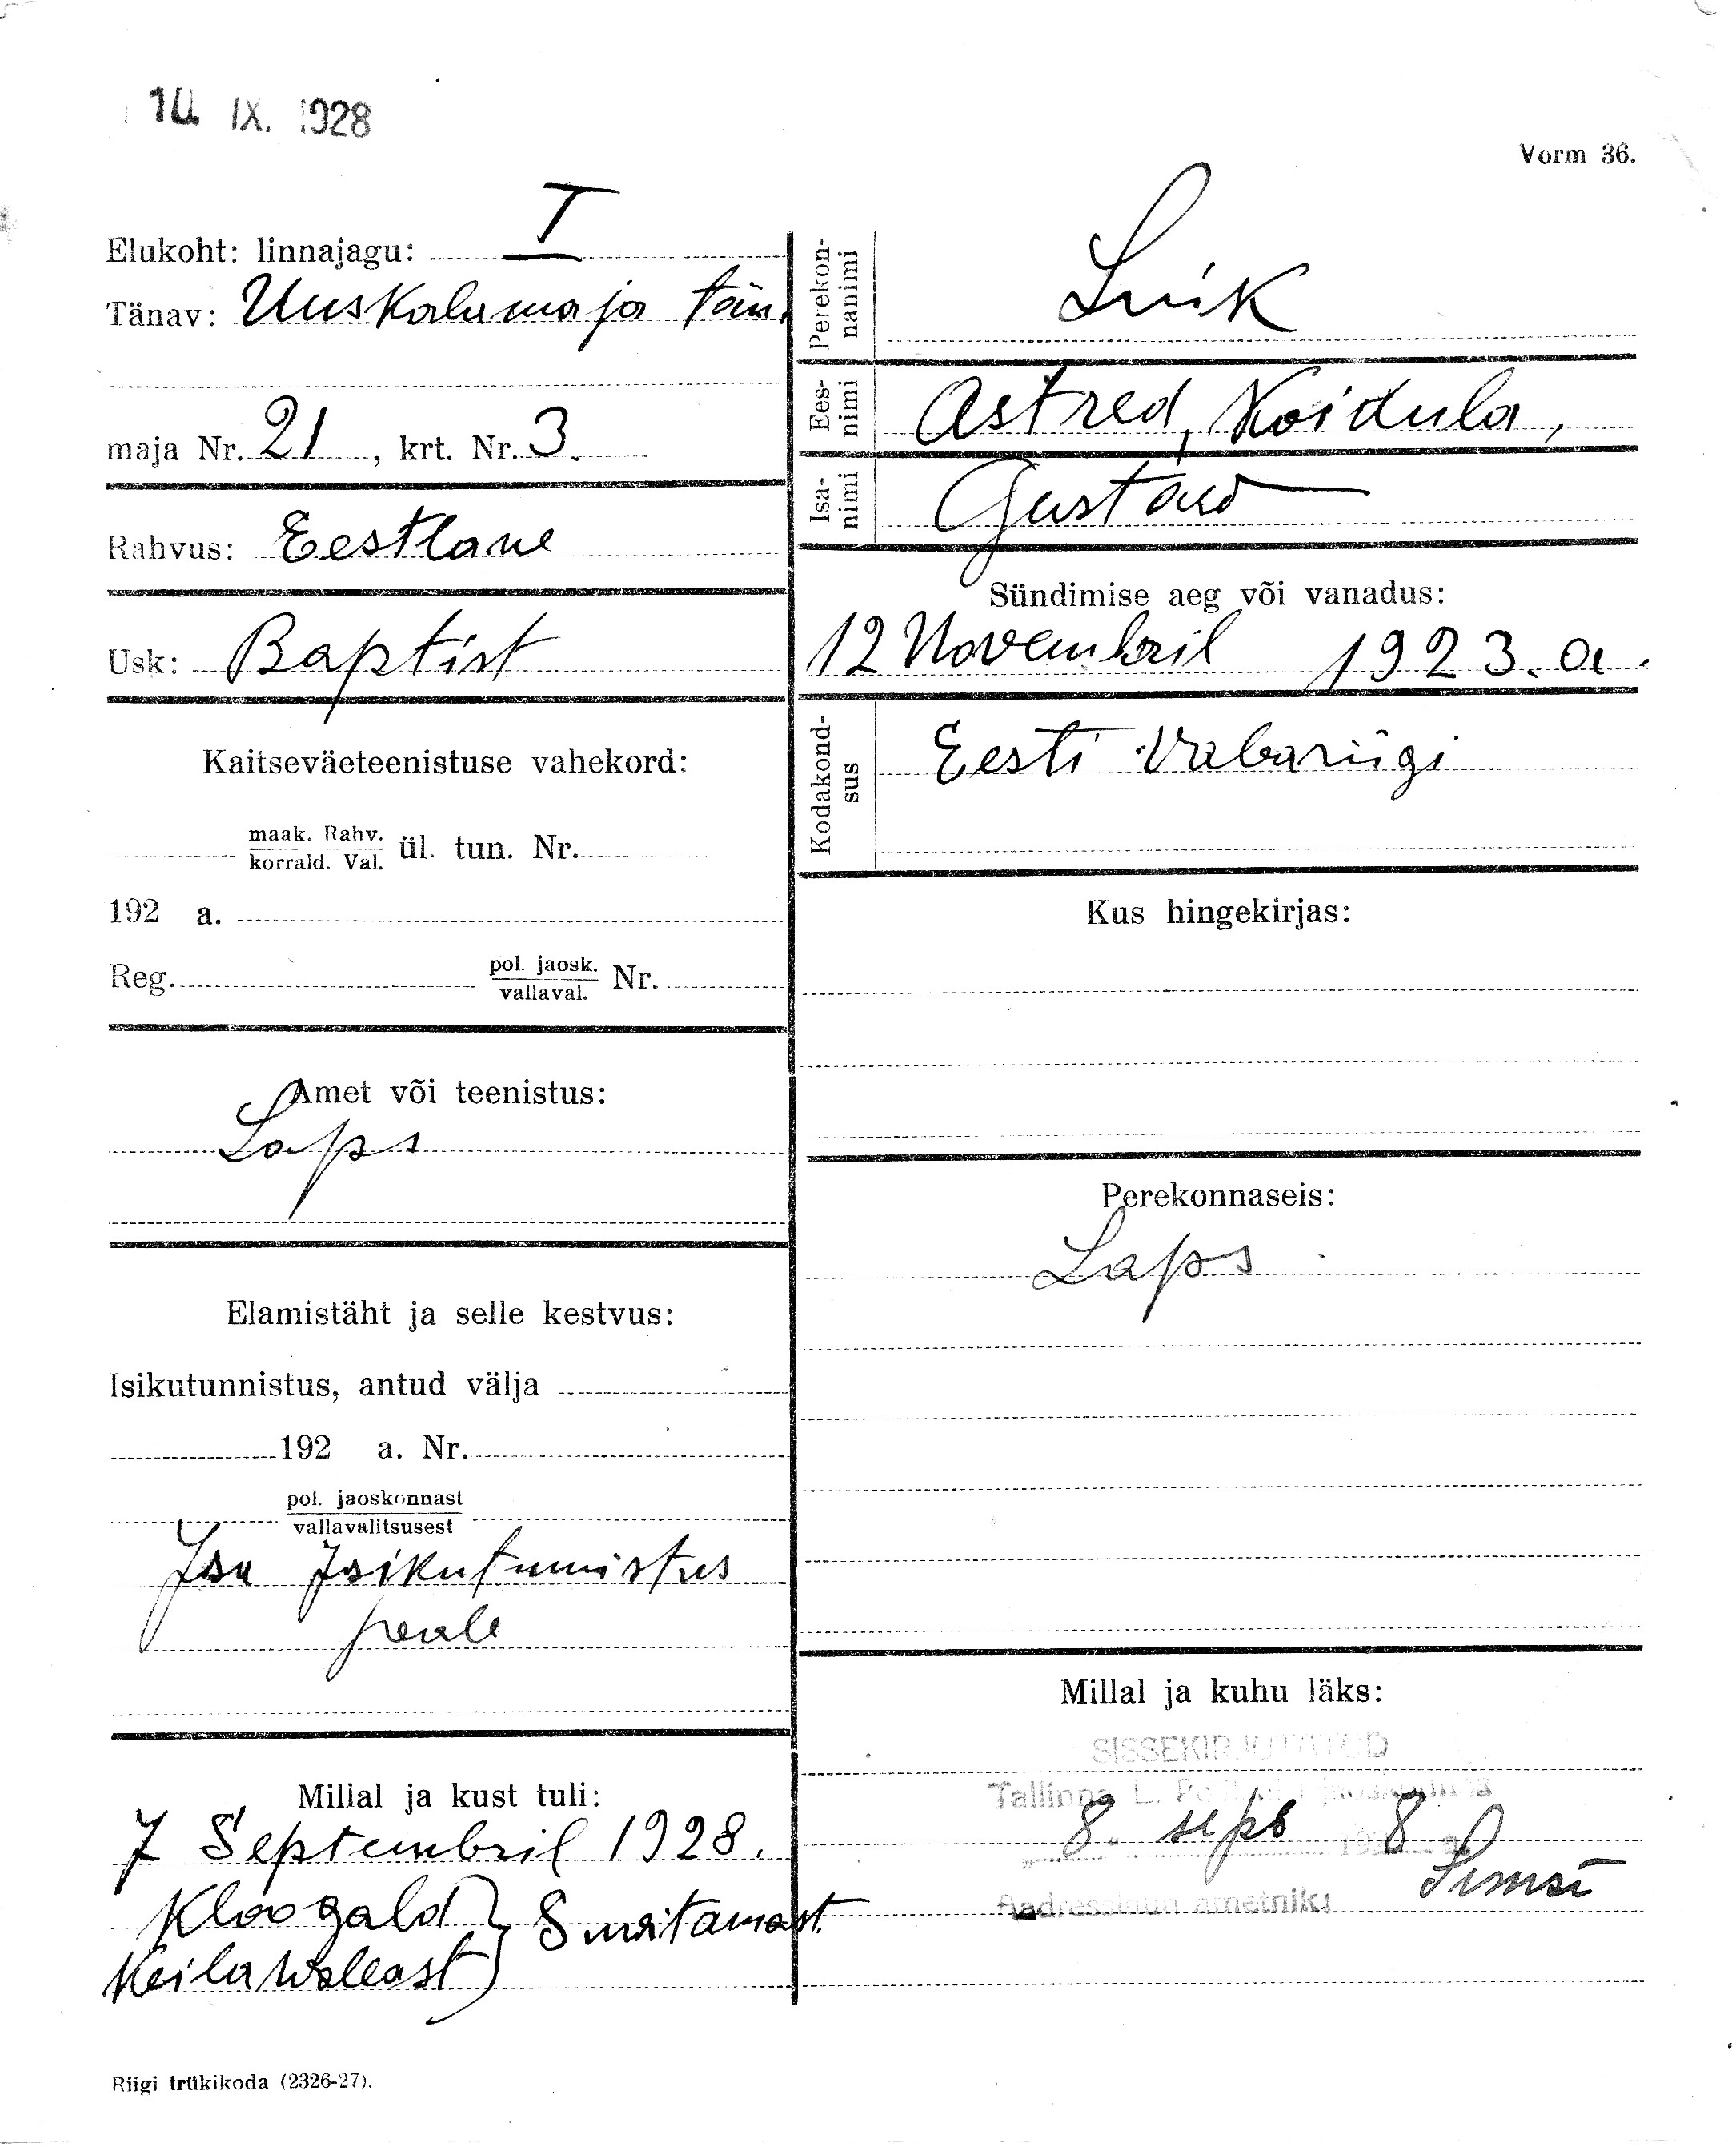 10. IX. 1928
Vorm 36.
Elukoht: linnajagu: I
Tänav: Uuskalamaja tän.
maja Nr. 21, krt. Nr. 3.
Rahvus: Eestlane
Usk: Baptist
Kaitseväeteenistuse vahekord:
maak. Rahv.
korrald. Val. ül. tun. Nr.
192 a.
Reg. pol. jaosk.
vallaval. Nr.
Amet või teenistus:
Laps
Elamistäht ja selle kestvus:
Isikutunnistus, antud välja
192 a. Nr.
pol. jaoskonnast
vallavalitsusest
Isa Isikutunnistus
peale
Millal ja kust tuli:
7 Septembril 1928.
Kloogald
Keila Wallast
Riigi trükikoda (2326-27).
Perekonnanimi
Luik
Eesnimi
Astred, Koidula,
Isanimi
Gustaw
Sündimise aeg või vanadus:
12 Novembril 1923. a.
Kodakondsus
Eesti Vabariigi
Kus hingekirjas:
Perekonnaseis:
Laps
Millal ja kuhu läks:
SISSEKIRJUTATUD
Tallinna L.
8. sept 1928 a.
Aadresslaua ametnik: